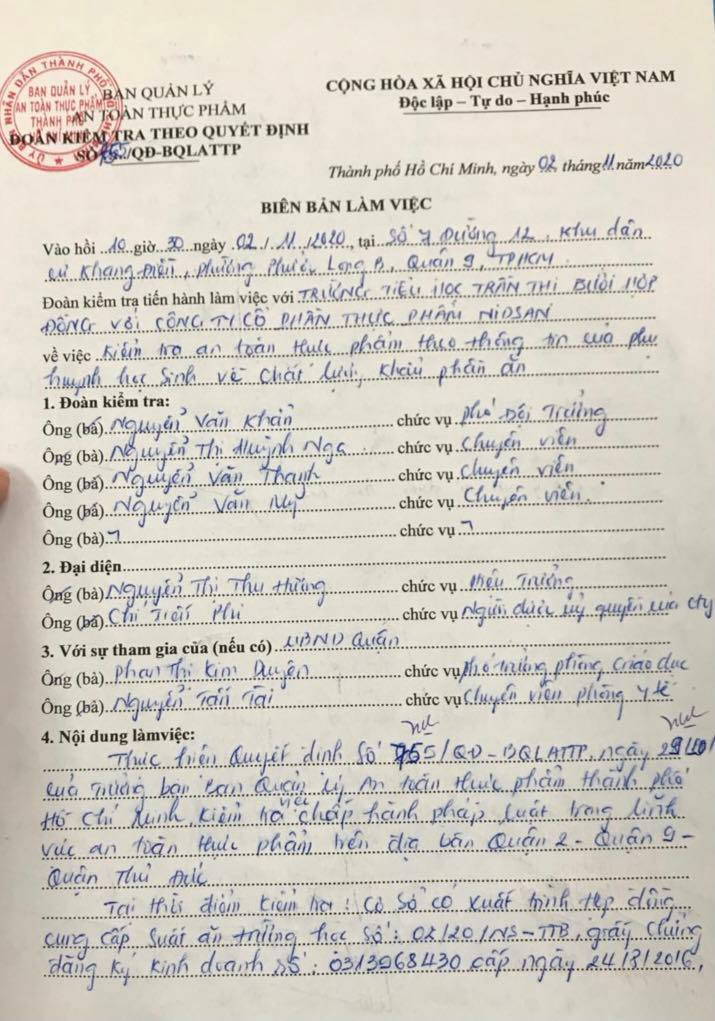 BAN QUẢN LÝ
AN TOÀN THỰC PHẨM
ĐOÀN KIỂM TRA THEO QUYẾT ĐỊNH
SỐ 755/QĐ-BQLATTP
BAN QUẢN LÝ
AN TOÀN THỰC PHẨM
THÀNH PHỐ
CỘNG HÒA XÃ HỘI CHỦ NGHĨA VIỆT NAM
Độc lập – Tự do – Hạnh phúc
Thành phố Hồ Chí Minh, ngày 02 tháng 11 năm 2020
BIÊN BẢN LÀM VIỆC
Vào hồi 10 giờ 30 ngày 02/11/2020, tại Số 7 Đường 12, Khu dân
cư Khang Điền, phường Phước Long B, Quận 9, TPHCM
Đoàn kiểm tra tiến hành làm việc với TRƯỜNG TIỂU HỌC TRẦN THỊ BƯỞI HỢP
ĐỒNG VỚI CÔNG TY CỔ PHẦN THỰC PHẨM NIDSAN
về việc Kiểm tra an toàn thực phẩm theo thông tin của phụ
huynh học sinh về chất lượng, khẩu phần ăn
1. Đoàn kiểm tra:
Ông (bà) Nguyễn Văn Khản chức vụ phó Đội Trưởng
Ông (bà) Nguyễn Thị Huỳnh Nga chức vụ Chuyên viên
Ông (bà) Nguyễn Văn Thanh chức vụ Chuyên viên
Ông (bà) Nguyễn Văn Mỹ chức vụ Chuyên viên.
Ông (bà) chức vụ
2. Đại diện
Ông (bà) Nguyễn Thị Thu Hường chức vụ Hiệu Trưởng
Ông (bà) Chí Triết Phi chức vụ Người được uỷ quyền của cty
3. Với sự tham gia của (nếu có) UBND Quận
Ông (bà) Phan Thị Kim Duyên chức vụ phó trưởng phòng Giáo dục
Ông (bà) Nguyễn Tấn Tài chức vụ Chuyên viên phòng Y tế
4. Nội dung làmviệc:
Thực hiện Quyết định Số 755/QĐ-BQLATTP, ngày
của Trưởng ban Ban Quản Lý An toàn thực phẩm thành phố
Hồ Chí Minh, kiểm tra việc chấp hành pháp luật trong lĩnh
vực an toàn thực phẩm trên địa bàn Quận 2 - Quận 9 -
Quận Thủ Đức
Tại thời điểm kiểm tra: Cơ Sở có xuất trình hợp đồng
cung cấp suất ăn trường học Số: 02/20/NS-TTB, giấy chứng
đăng ký kinh doanh số: 0313968430 cấp ngày 24/8/2016,